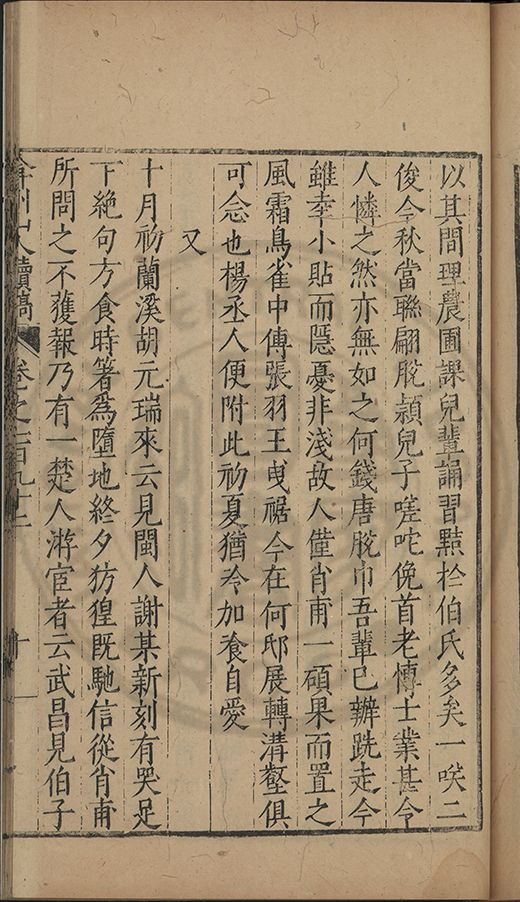 以其間理農圃課兒輩誦習黠於伯氏多矣一咲二
俊今秋當聯翩脫頴兒子嗟咜俛首老博士業甚令
人憐之然亦無如之何錢唐脫巾吾輩已辦跣走今
雖幸小貼而隱憂非淺故人僅肖甫一碩果而置之
風霜鳥雀中傳張羽王曳裾今在何邸展轉溝壑俱
可念也楊丞人便附此初夏猶冷加飡自愛
又
十月初蘭溪胡元瑞來云見閩人謝某新刻有哭足
下絶句方食時箸為墮地終夕彷徨既馳信從肖甫
所問之不獲報乃有一楚人游宦者云武昌見伯子
弇州山人續稿 卷之一百九十二 十